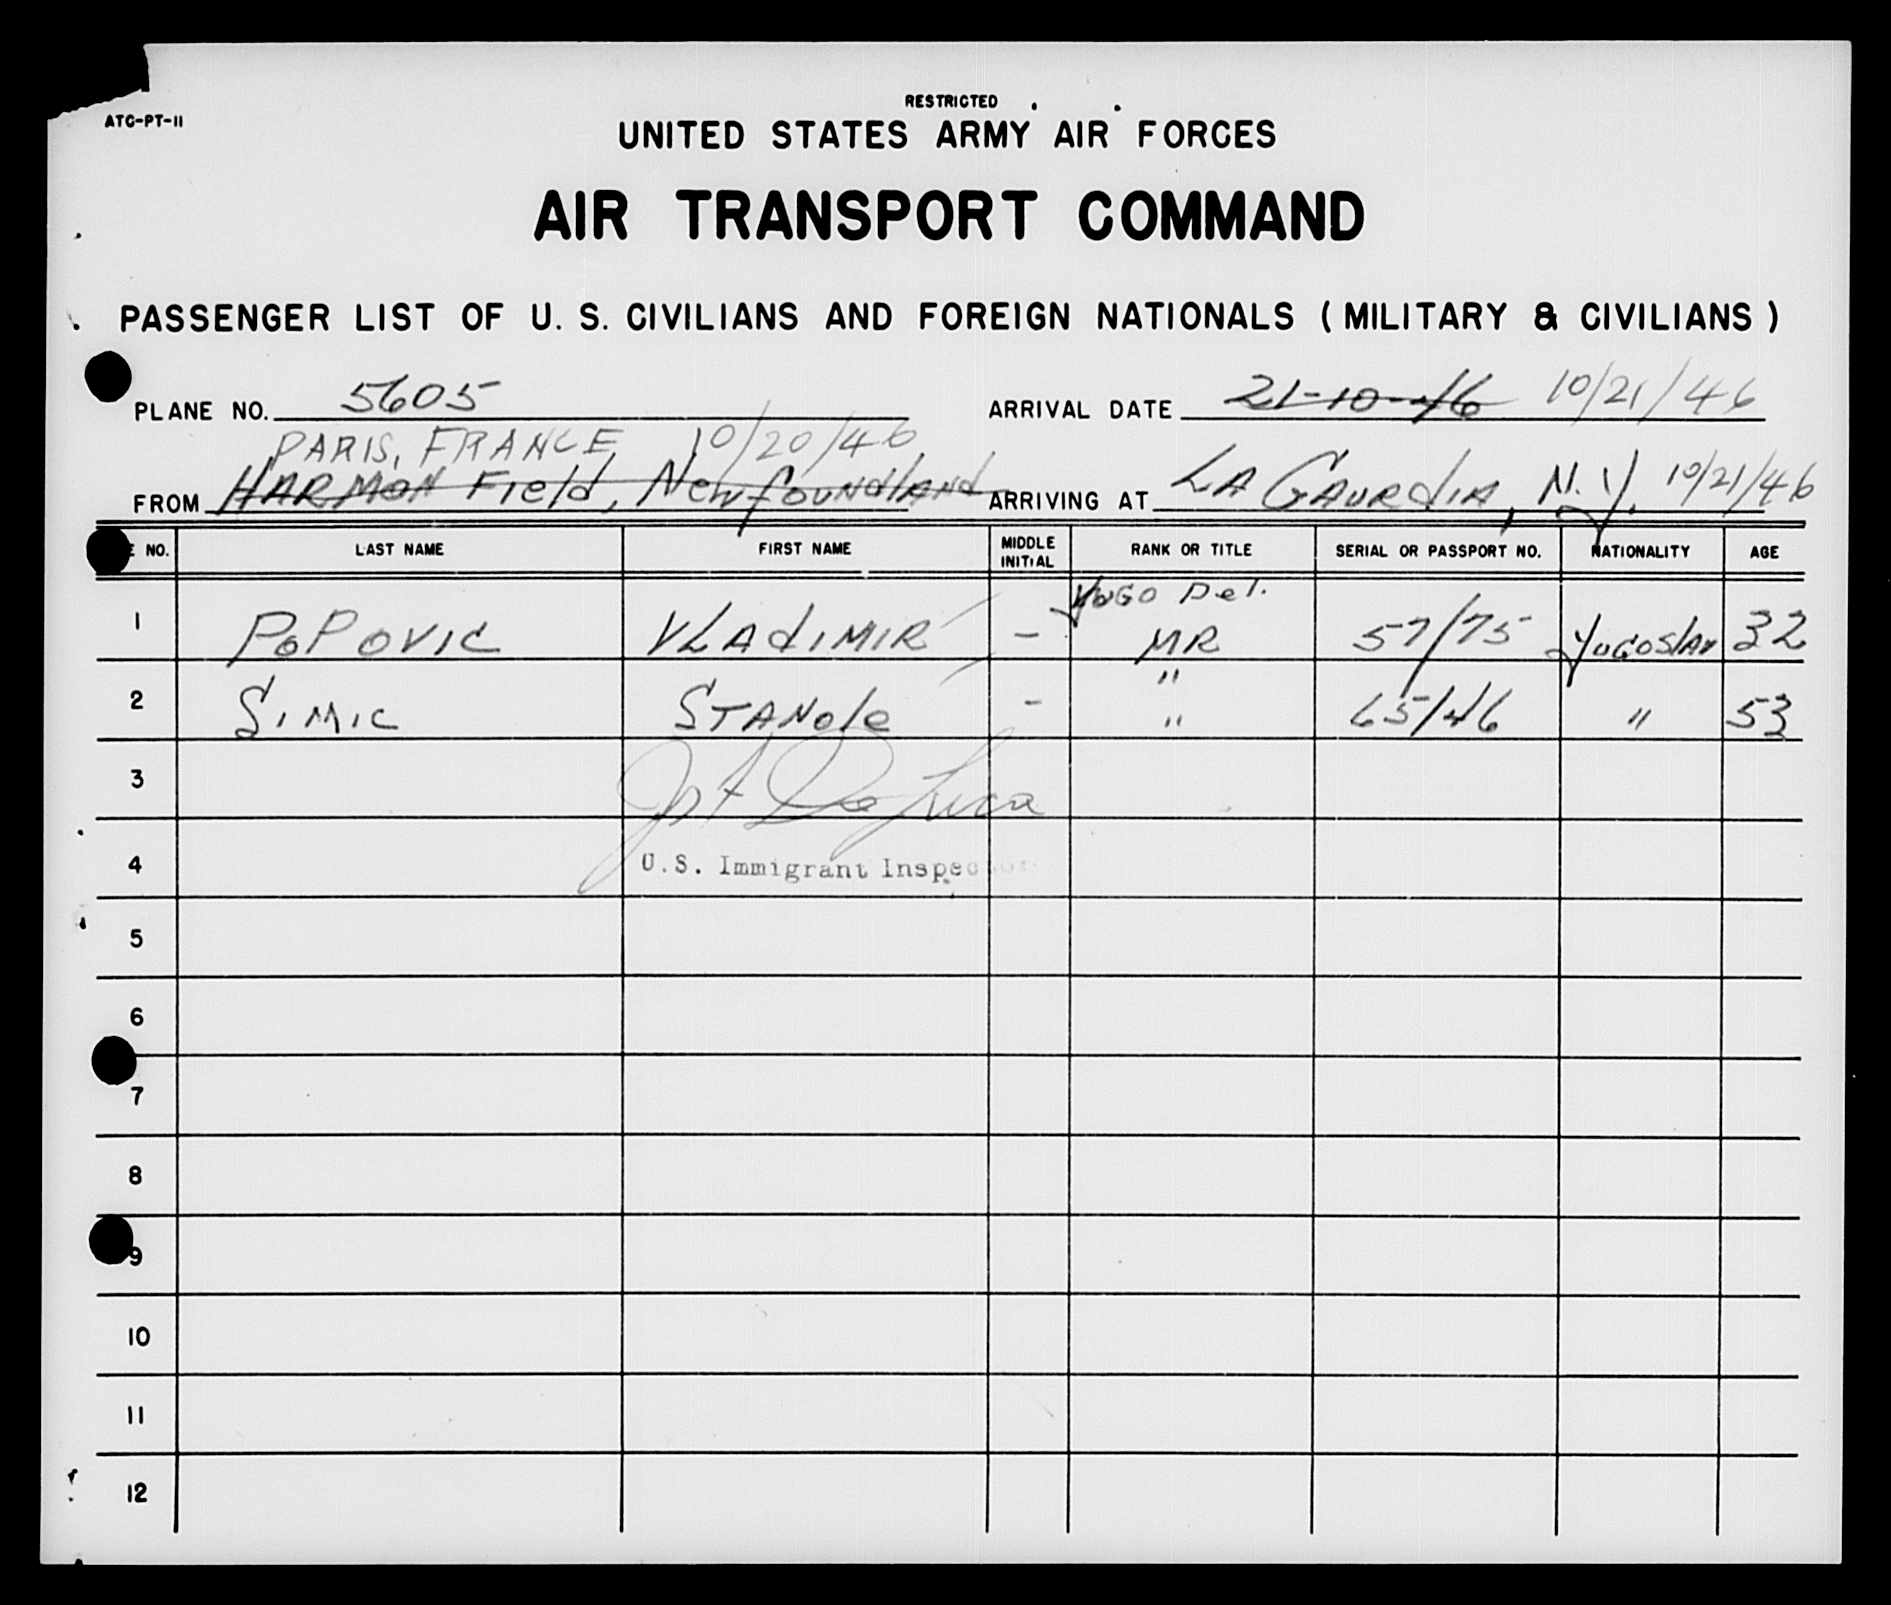 RESTRICTED
ATC-PT-11
UNITED STATES ARMY AIR FORCES
AIR TRANSPORT COMMAND
PASSENGER LIST OF U. S. CIVILIANS AND FOREIGN NATIONALS (MILITARY & CIVILIANS)
PLANE NO. 5605 ARRIVAL DATE 21-10-46 10/21/46
PARIS, FRANCE 10/20/46
FROM HARMON Field, Newfoundland ARRIVING AT LA GAURdIA, N.Y. 10/21/46
E NO. LAST NAME FIRST NAME MIDDLE INITIAL RANK OR TITLE SERIAL OR PASSPORT NO. NATIONALITY AGE
YUGO Del.
1 POPOVIC VLAdIMIR - MR 57/75 YugoslAv 32
"
2 SIMIC STANOle - " 65/46 " 53
3
4 U.S. Immigrant Inspector
5
6
7
8
9
10
11
12